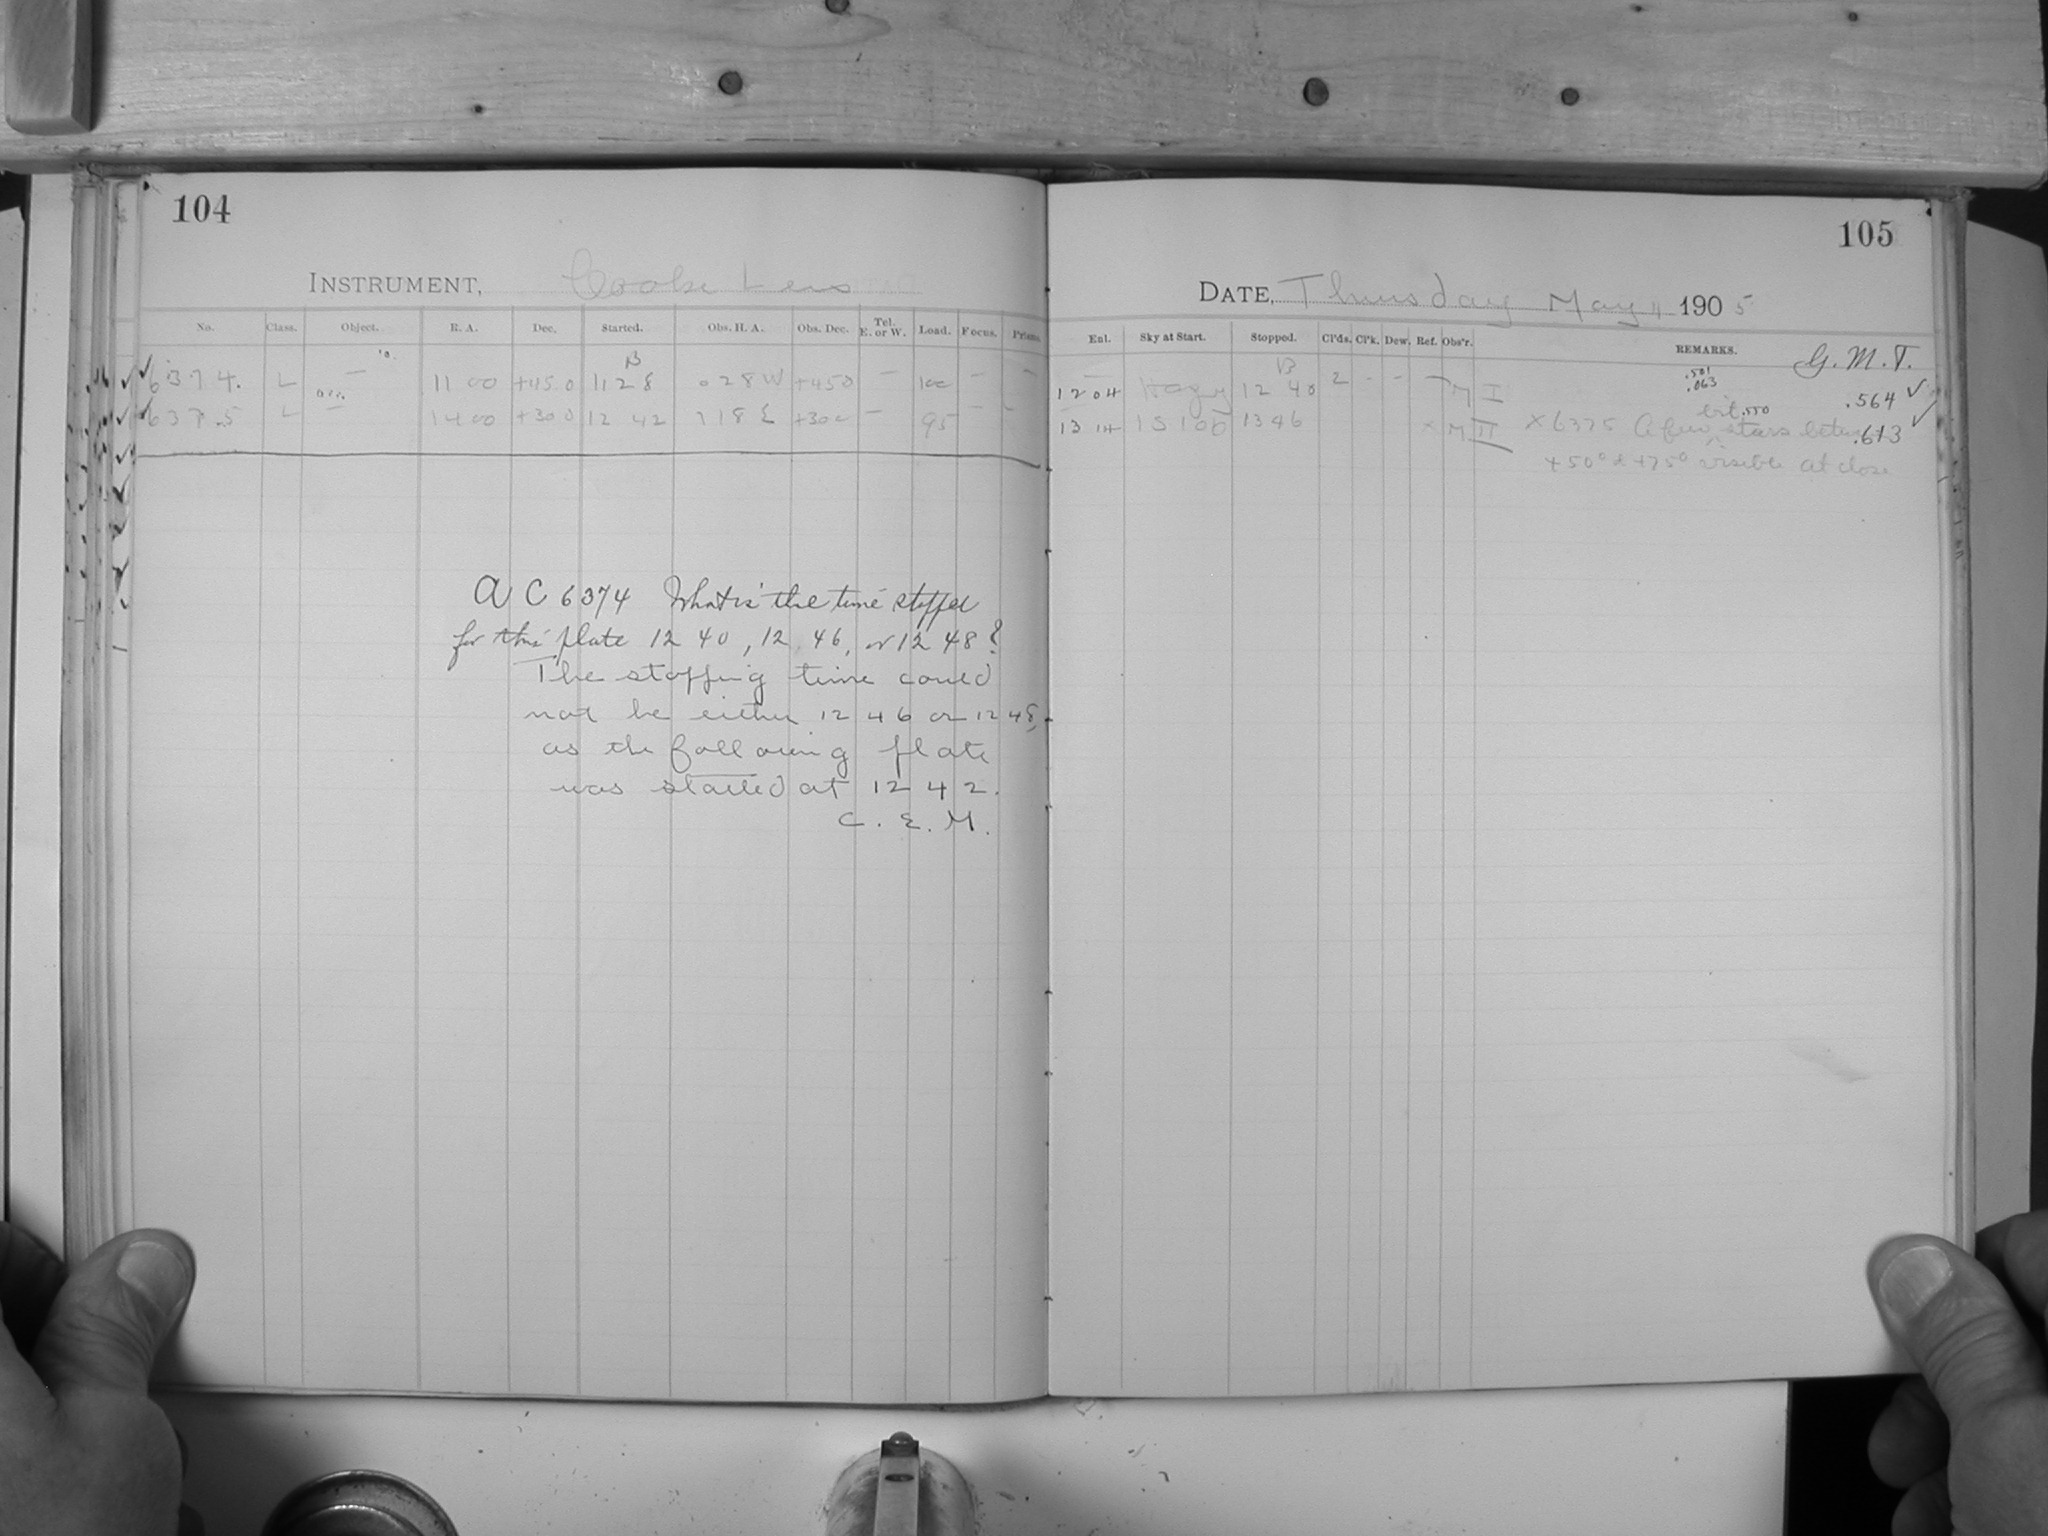 104
INSTRUMENT, Cooke Lens
No. Class. Object. R. A. Dec. Started. Obs. H. A. Obs. Dec. Tel. E. or W. Load. Focus. Prisms.
B
6374. L — 11 00 +45 0 11 28 0 28 W +45 0 — 100 — —
6375 L — 14 00 +30 0 12 42 1 18 E +30 0 — 95 —
A C 6374 What is the time stopped
for this plate 12 40, 12 46, or 12 48?
The stopping time could
not be either 12 46 or 12 48,
as the following plate
was started at 12 42.
C. E. M.
105
DATE, Thursday May 11 1905
Enl. Sky at Start. Stopped. Cl'ds. Cl'k. Dew. Ref. Obs'r. REMARKS. G. M. T.
B
12 04 Hazy 12 40 2 - - — M I .501 .063 .564 ✓
13 14 13 46 × M II × 6375 A few stars .550 .613 ✓
+50° & +75° visible at close